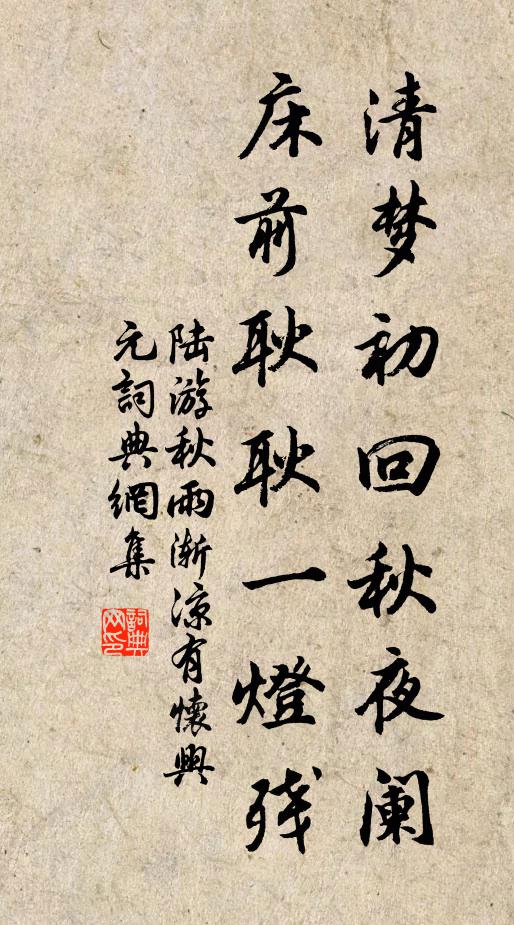 清梦初回秋夜阑
床前耿耿一燈残
陆游秋雨渐凉有懷興
元詞典網集
詞典
网印